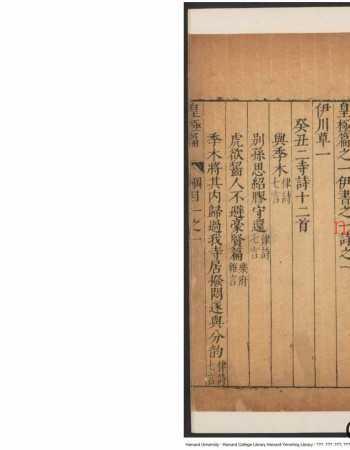 皇極篇之一伊書之
詩之一
伊川草一
癸丑二寺詩十二首
興季木 律詩 七言
別孫思紹膠守還 律詩 七言
虎欲留人不避豪賢篇 樂府 雜言
季木將其內歸過我寺居撥悶遂與分韵 律詩 七言
皇極篇 綱目一之一
Harvard University - Harvard College Library Harvard-Yenching Library